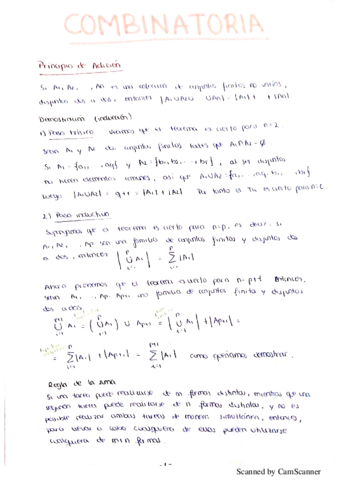 COMBINATORIA
Principio de Adición
Si A₁, A₂, ..., An es una colección de conjuntos finitos no vacíos,
disjuntos dos a dos, entonces |A₁∪A₂∪...∪An| = |A₁| + ... + |An|
Demostración (inducción)
1) Paso básico Veamos que el teorema es cierto para n=2
Sean A₁ y A₂ dos conjuntos finitos tales que A₁∩A₂ = ∅
Si A₁ = {a₁, ..., aq} y A₂ = {b₁, b₂, ..., br}, al ser disjuntos
no tienen elementos comunes, así que A₁∪A₂ = {a₁, ..., aq, b₁, ..., br}
luego |A₁∪A₂| = q+r = |A₁| + |A₂| Por tanto es cierto para n=2
2) Paso inductivo
Supongamos que el teorema es cierto para n=p, es decir, si
A₁, A₂, ..., Ap son una familia de conjuntos finitos y disjuntos dos
a dos, entonces |⋃ᵢ₌₁ᵖ Aᵢ| = Σᵢ₌₁ᵖ |Aᵢ|
Ahora probemos que el teorema es cierto para n=p+1 Entonces,
sean A₁, ..., Ap, Ap+1 una familia de conjuntos finitos y disjuntos
dos a dos,
⋃ᵢ₌₁ᵖ⁺¹ Aᵢ = (⋃ᵢ₌₁ᵖ Aᵢ) ∪ Ap+1 = |⋃ᵢ₌₁ᵖ Aᵢ| + |Ap+1| =
= Σᵢ₌₁ᵖ |Aᵢ| + |Ap+1| = Σᵢ₌₁ᵖ⁺¹ |Aᵢ| como queríamos demostrar.
Regla de la suma
Si una tarea puede realizarse de m formas distintas, mientras que una
segunda tarea puede realizarse de n formas distintas, y no es
posible realizar ambas tareas de manera simultánea, entonces,
para llevar a cabo cualquiera de ellas pueden utilizarse
cualquiera de m+n formas.
-1-
Scanned by CamScanner